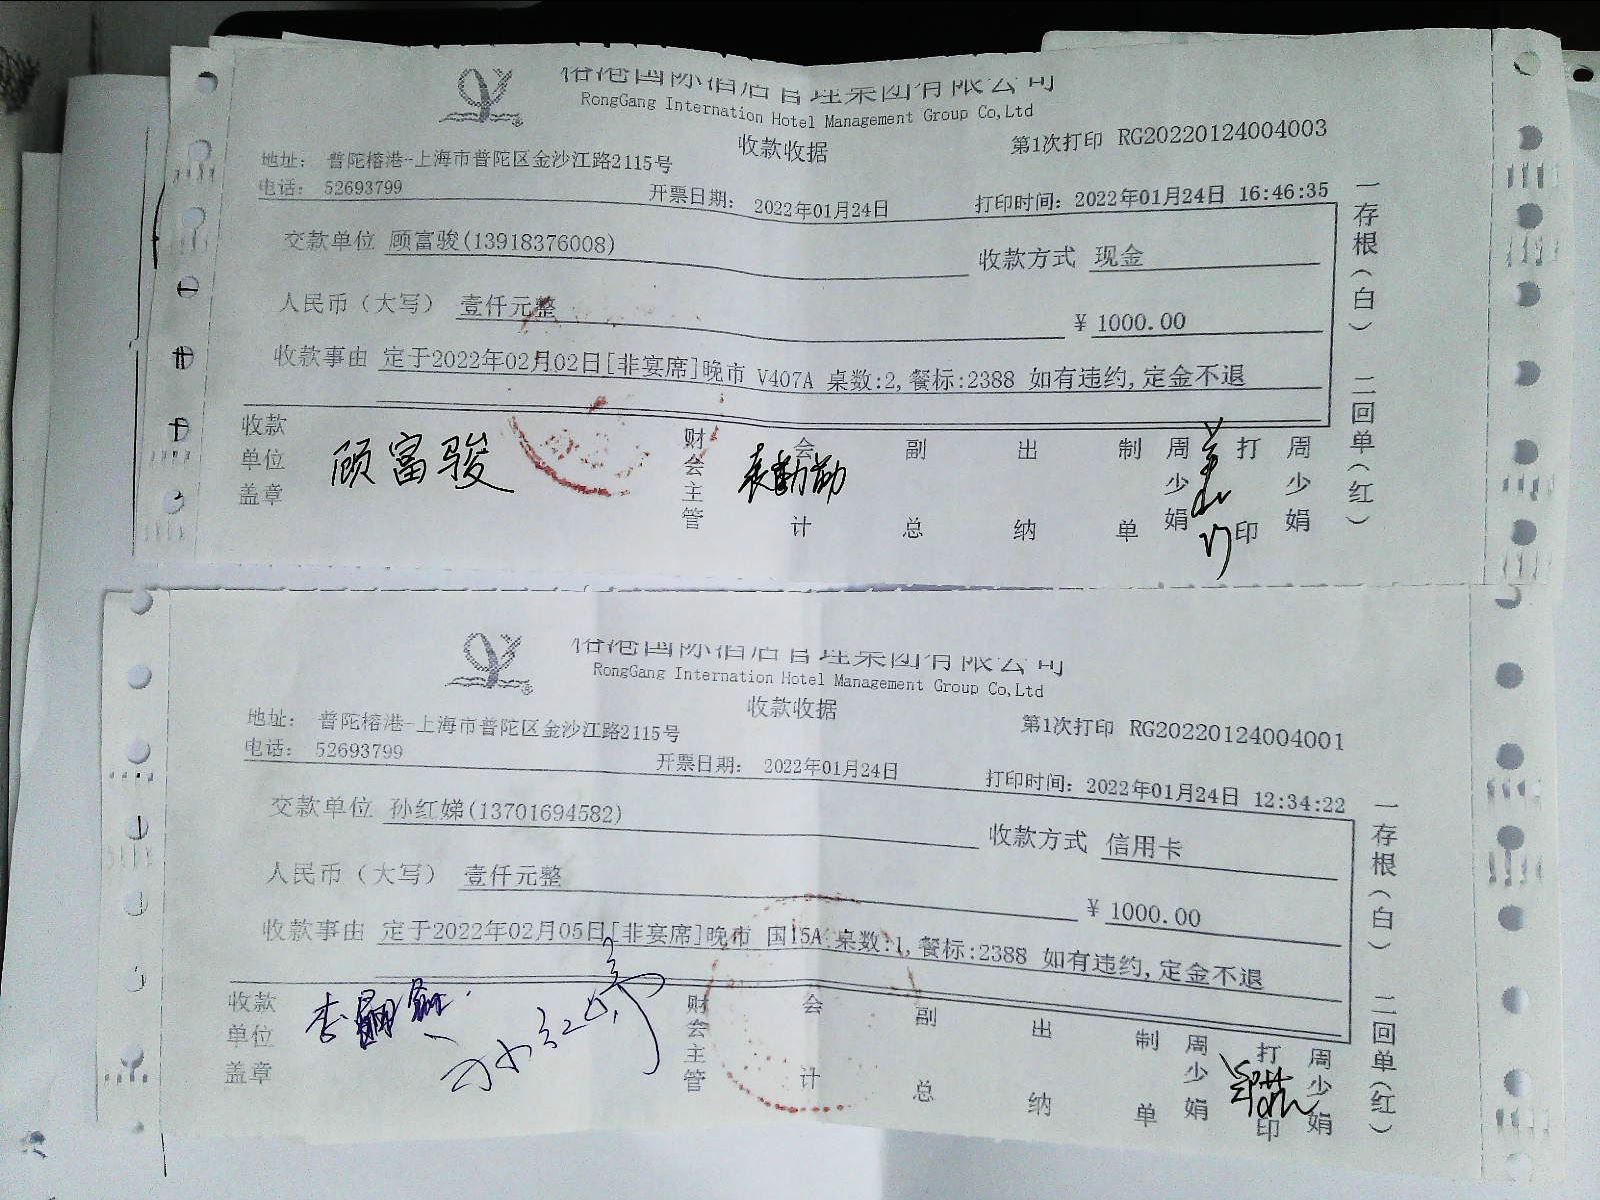 榕港国际酒店管理集团有限公司
RongGang Internation Hotel Management Group Co,Ltd
收款收据
第1次打印 RG20220124004003
地址： 普陀榕港-上海市普陀区金沙江路2115号
电话： 52693799
开票日期： 2022年01月24日
打印时间：2022年01月24日 16:46:35
交款单位 顾富骏(13918376008)
收款方式 现金
人民币（大写） 壹仟元整
¥ 1000.00
收款事由 定于2022年02月02日[非宴席]晚市 V407A 桌数:2,餐标:2388 如有违约,定金不退
一存根（白） 二回单（红）
收款单位盖章
顾富骏
财会主管
会计
副总
出纳
制单
周少娟
打印
周少娟
榕港国际酒店管理集团有限公司
RongGang Internation Hotel Management Group Co,Ltd
收款收据
第1次打印 RG20220124004001
地址： 普陀榕港-上海市普陀区金沙江路2115号
电话： 52693799
开票日期： 2022年01月24日
打印时间：2022年01月24日 12:34:22
交款单位 孙红娣(13701694582)
收款方式 信用卡
人民币（大写） 壹仟元整
¥ 1000.00
收款事由 定于2022年02月05日[非宴席]晚市 国15A 桌数:1,餐标:2388 如有违约,定金不退
一存根（白） 二回单（红）
收款单位盖章
孙红娣
财会主管
会计
副总
出纳
制单
周少娟
打印
周少娟